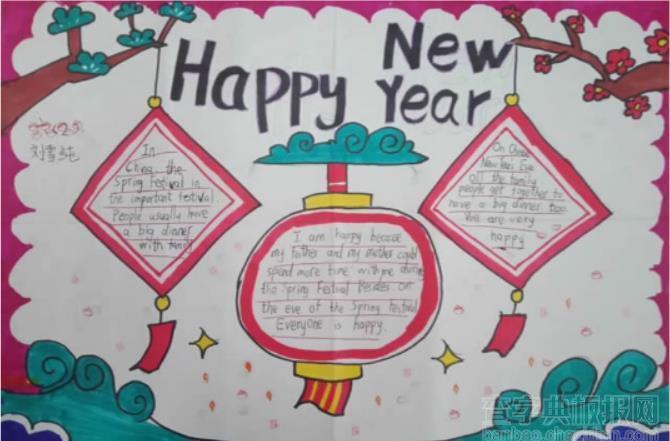 Happy New
Year
刘雪纯
In
China, the
Spring Festival in
the important festival.
People usually have
a big dinner
with family
I am happy because
my father and my mother could
spend more time with me during
the Spring Festival Besides on
the eve of the Spring Festival
Everyone is happy.
On
New Year Eve
all the family
people get together to
have a big dinner too
We are very
happy